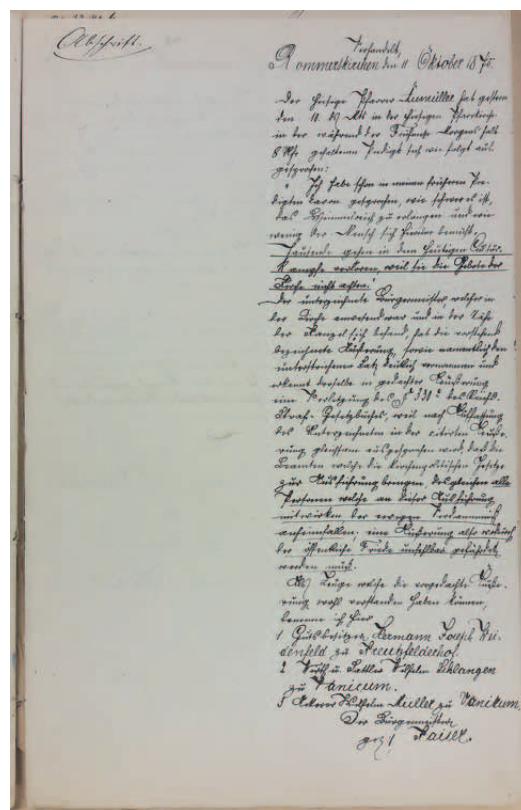 Abschrift.
Verhandelt,
Rommerskirchen den 11 Oktober 1875.
Der hiesige Pfarrer Neumüller hat gestern
den 10. ds Mts in der hiesigen Pfarrkirche
in der während der Frühmesse Morgens halb
8 Uhr gehaltenen Predigt sich wie folgt aus-
gesprochen:
" Ich habe schon in meinen früheren Pre-
digten davon gesprochen, wie schwer es ist,
das Himmelreich zu erlangen und wie
wenig der Mensch sich hierum bemüht.
Tausende gehen in dem heutigen Cultur-
kampfe verloren, weil sie die Gebote der
Kirche nicht achten."
Der unterzeichnete Bürgermeister, welcher in
der Kirche anwesend war und in der Nähe
der Kanzel sich befand, hat die vorstehend
bezeichnete Äußerung, sowie namentlich den
unterstrichenen Satz deutlich vernommen und
erkennt derselbe in gedachter Äußerung
eine Verletzung des § 130 a des Reichs-
Straf-Gesetzbuches, weil nach Auffassung
des Unterzeichneten in der citirten Äuße-
rung gleichsam ausgesprochen wird, daß die
Beamten welche die kirchenpolitischen Gesetze
zur Ausführung bringen, desgleichen alle
Personen welche an dieser Ausführung
mitwirken der ewigen Verdammniß
anheimfallen; eine Äußerung also wodurch
der öffentliche Friede unfehlbar gefährdet
werden muß.
Als Zeuge welche die vorgedachte Äuße-
rung wohl verstanden haben können,
benenne ich hier
1 Gutsbesitzer Hermann Joseph
zu Kreuzfelderhof.
2 Wirth u. Sattler Wilhelm Schlangen
zu Vanicum.
3 Ackerer Wilhelm Müller zu Vanikum.
Der Bürgermeister
gez: